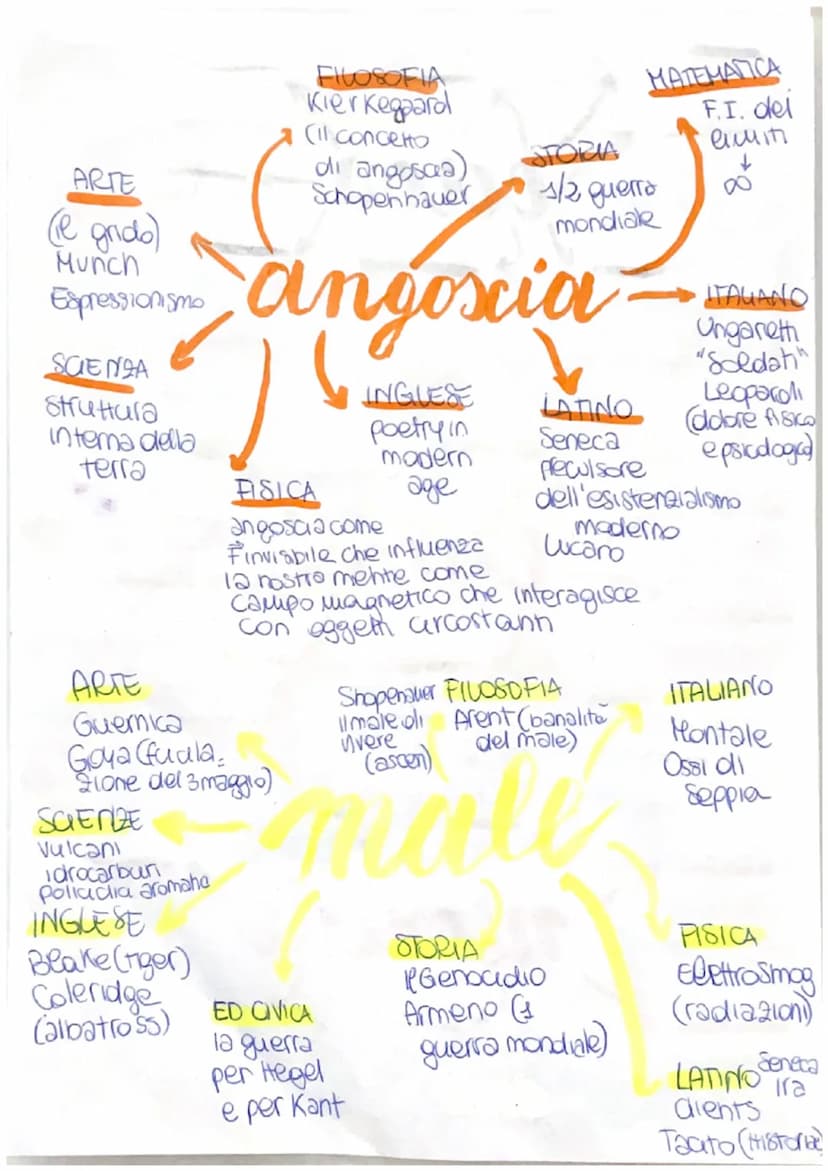 FILOSOFIA
Kierkegaard
(il concetto
di angoscia)
Schopenhauer
MATEMATICA
F.I. dei
limiti
↓
∞
STORIA
1/2 guerra
mondiale
ARTE
(il grido)
Munch
Espressionismo
angoscia
ITALIANO
Ungaretti
"Soldati"
Leopardi
(dolore fisico
e psicologico)
SCIENZA
struttura
interna della
terra
INGLESE
poetry in
modern
age
LATINO
Seneca
precursore
dell'esistenzialismo
moderno
Lucano
FISICA
angoscia come
F invisibile che influenza
la nostra mente come
campo magnetico che interagisce
con oggetti circostanti
ARTE
Guernica
Goya (fucila=
zione del 3 maggio)
Shopenauer
il male di
vivere
(ascesi)
FILOSOFIA
Arent (banalità
del male)
ITALIANO
Montale
Ossi di
Seppia
male
SCIENZE
vulcani
idrocarburi
aromatici
INGLESE
Blake (tiger)
Coleridge
(albatross)
ED CIVICA
la guerra
per Hegel
e per Kant
STORIA
il Genocidio
Armeno (1
guerra mondiale)
FISICA
Elettrosmog
(radiazioni)
LATINO Seneca
Ira
clients
Tacito (Historiae)